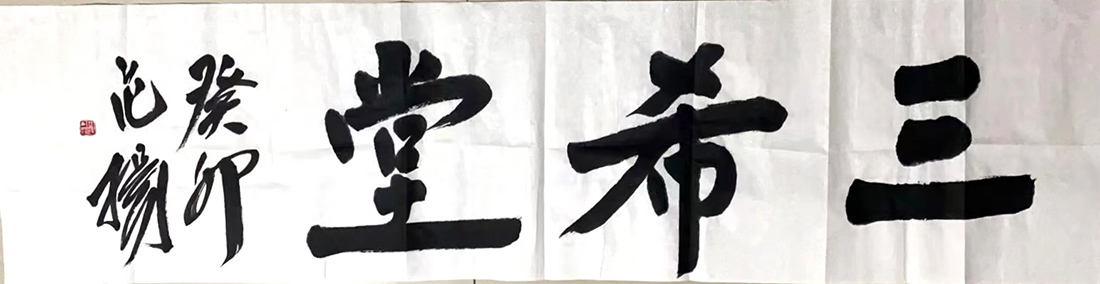 三希堂
癸卯
范扬